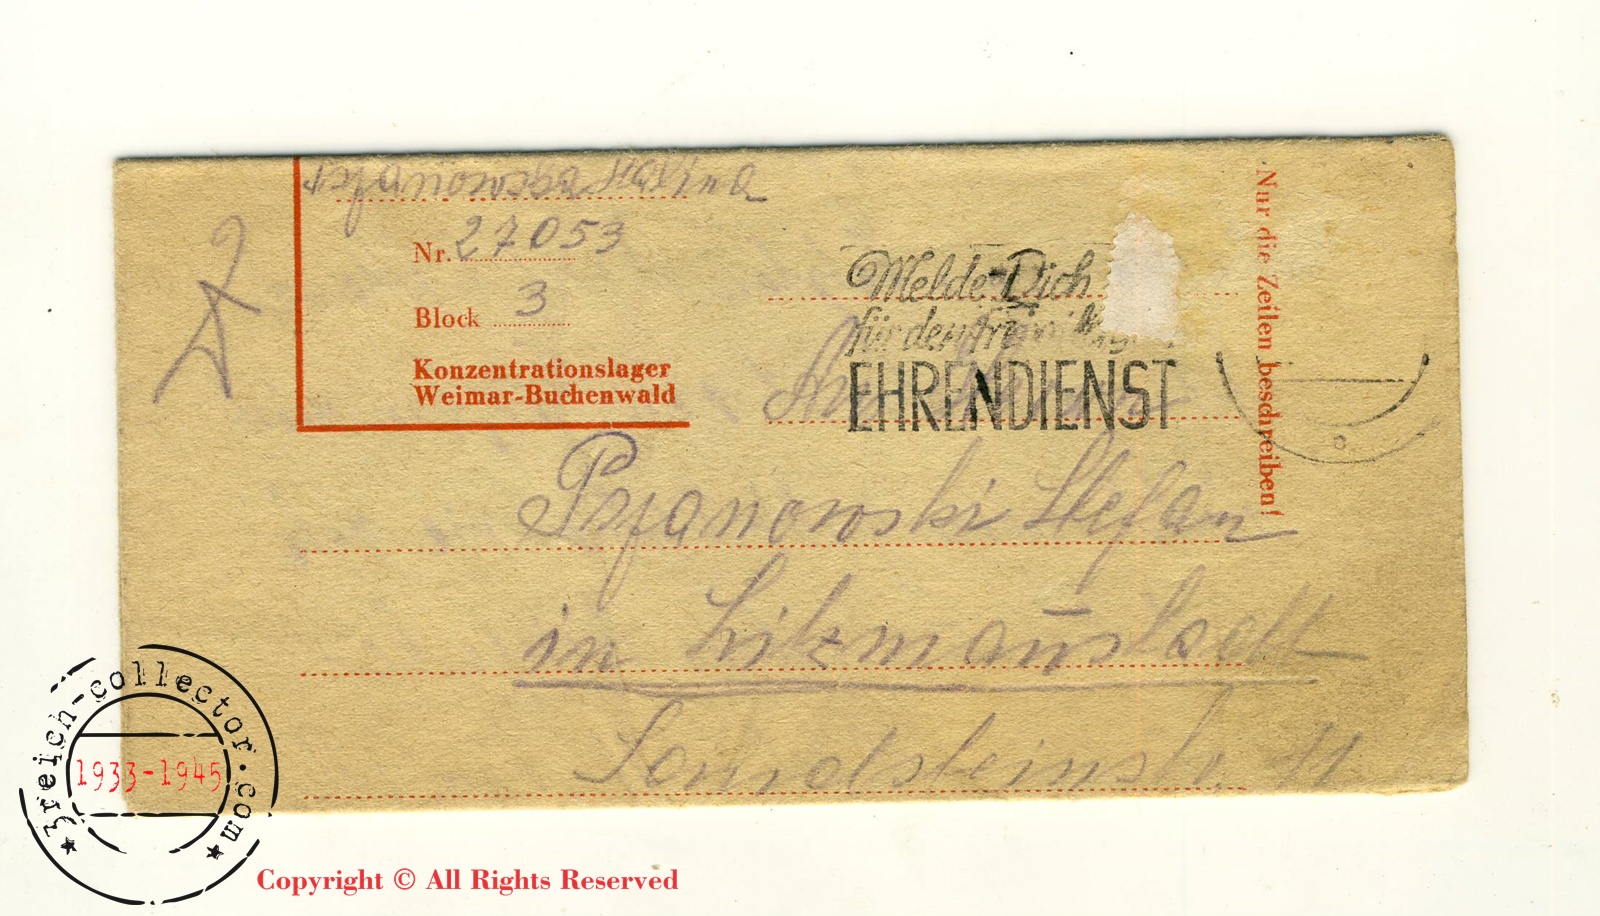 Nr. 27053
Block 3
Konzentrationslager
Weimar-Buchenwald
Melde-Dich
für den
EHRENDIENST
Nur die Zeilen beschreiben!
Stefan
in Litzmannstadt
11
3reich-collector.com
1933-1945
Copyright © All Rights Reserved